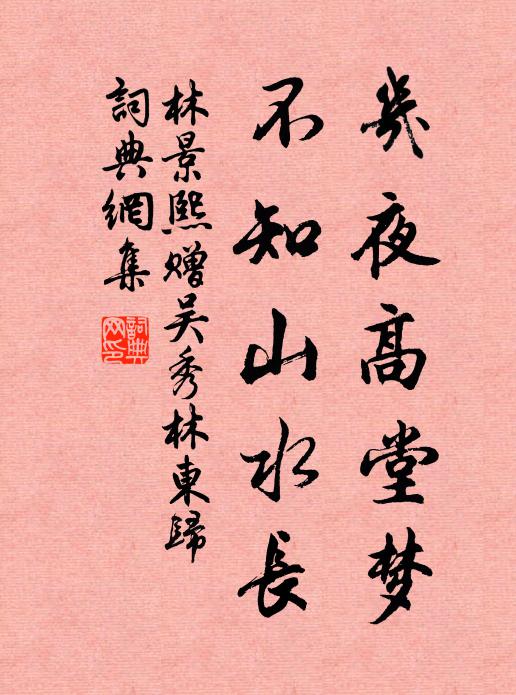 幾夜高堂梦
不知山水長
林景熙赠吴秀林東歸
詞典網集
詞典网印